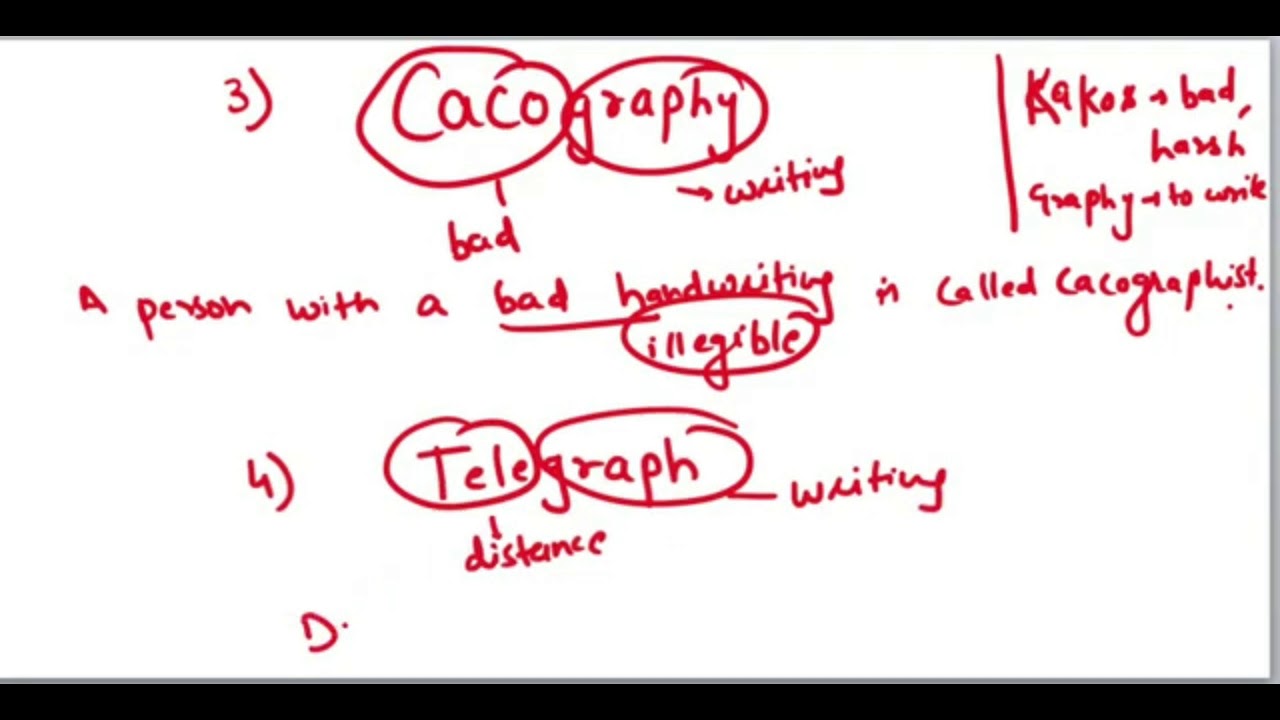 3) Cacography
→ writing
bad
Kakos → bad,
harsh
Graphy → to write
A person with a bad handwriting is called Cacographist.
illegible
4) Telegraph
writing
distance
D.